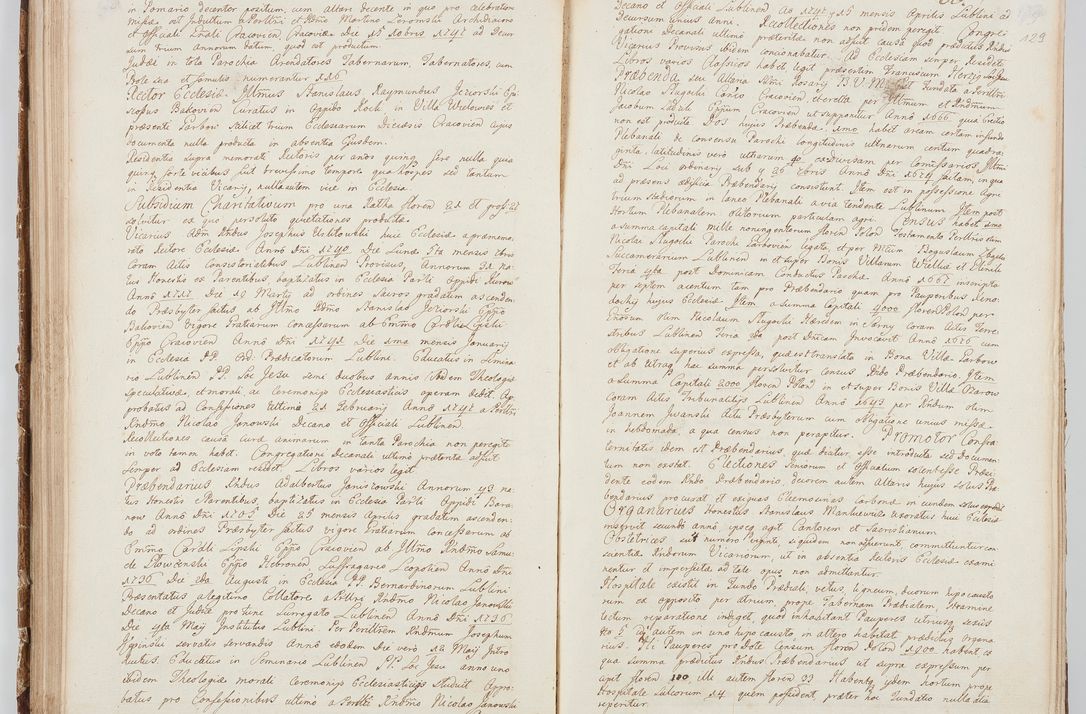 in Pomario decenter positum, cum altare decente in quo pro celebratione
missæ est Indultum a Perillri et Rdmo Martino Zeromski Archidiacono
et Officiali Gnali Cracovien Cracoviæ Die 15 8bris 1747 ad decur
sum trium Annorum datum, quod est productum
Judæi in tota Parochia Arendatores Tabernarum, Tabernatores, cum
Prole sua et famulis numerantur 116
Rector Ecclesiæ Illmus Stanislaus Raymundus Jeziorski Epi
scopus Bakovien Curatus in Oppido Kock in Villa Wielowies et
præsenti Garboviensi scilicet trium Ecclesiarum Diœcesis Cracovien cujus
documenta nulla producta in absentia Ejusdem.
Residentia supra memorati Rectoris per annos quinq fere nulla quia
quinq forte vicibus fuit brevissimo tempore qua hospes sed tantum
in Residentia Vicarij, nulla autem vice in Ecclesia.
Subsidium Charitativum pro una Ratha floren 21 et gross 27
solvitur ex quo persoluto quietationes productæ.
Vicarius Adm Rndus Josephus huic Ecclesiæ a præmemo
rato Rectore Ecclesiæ Anno Dni 1740 Die Lunæ mensis 8bris
Coram Actis Consistorialibus Lublinen Provisus, Annorum 31 na
tus Honestis ex Parentibus, baptizatus in Ecclesia Parlli Oppidi
Anno 1717 Die 19 Martij ad ordines Sacros gradatim ascenden
do Præsbyter factus ab Illmo Rdmo Stanislao Jeziorski Eppo
Bakovien Vigore Gratiarum concessarum ab Emmo Cardli Lipski
Eppo Cracovien Anno Dni 1742 Die 1ma mensis Januarij
in Ecclesia PP. Ord. Prædicatorum Lublini. Educatus in Semina
rio Lublinen PP. Soc Jesu semi duobus annis ibidem Theologiæ
speculativæ, et morali, ac Ceremonijs Ecclesiasticis operam dedit. Ap
probatus ad Confessiones Ultimo 21 Februarij Anno 1747 a Perillri
Rndmo Nicolao Janowski Decano et Officiali Lublinen.
Recollectiones causa curæ animarum in tanta Parochia non peregit
in voto tamen habet. Congregationi Decanali ultimo præterita adfuit
Semper ad Ecclesiam residet. Libros varios legit.
Præbendarius Rndus Adalbertus Janiszowski Annorum 43 na
tus Honestis e Parentibus, baptizatus in Ecclesia Parlli Oppidi Bara
now Anno Dni 1705 Die 25 mensis Aprilis gradatim ascenden
do ad ordines Præsbyter factus vigore Gratiarum concessarum ab
Emmo Cardli Lipski Eppo Cracovien ab Illmo Rndmo Samu
ele Eppo Hebronen Suffraganeo Leopolien Anno Dni
1736 Die 1ma Augusti in Ecclesia PP. Bernardinorum Lublini
Præsentatus a legitimo Collatore a Perillri Rndmo Nicolao Janowski
Decano et Judice pro tunc Surrogato Lublinen Anno Dni 1736
Die 4ta Maij Institutus Lublini. Per Perillrem Rndmum Josephum
servatis servandis Anno eodem Die vero 12 Maij Intro
ductus. Educatus in Seminario Lublinen PP. Soc Jesu anno uno
ibidem Theologiæ morali Ceremonijs Ecclesiasticis studuit Appro
batus pro Confessionibus ultimo a Perillri Rndmo Nicolao Janowski
129
Decano et Officiali Lublinen Ao 1747 15 mensis Aprilis Lublini ad
Decursum unius anni. Recollectiones non pridem peregit Congre
gationi Decanali ultimo præteritæ non adfuit causa quod prædictus Rndus
Vicarius Provisus ibidem concionabatur. Ad Ecclesiam semper Residet
Libros varios Classicos habet legit præsertim Franciscum Herzig
Præbenda seu Altaria Sctmi Rosarij B.V.M. est fundata a Perillri
Nicolao Slugocki Canco Cracovien, et erecta per Illmum et Rndmum
Jacobum Zadzik Eppum Cracovien ut supponitur Anno 1666 quia Erectio
non est producta Dos hujus Præbendæ. 1mo habet aream certam in fundo
Plebanali de consensu Parochi longitudinis ulnarum centum quadra
ginta, latitudinis vero ulnarum ex divisam per Comissarios Illmi
Dni Loci ordinarij sub 9 26 8bris Anno Dni 1674 factam, in qua
ad præsens ædificia Præbendarij consistunt. Item est in possessione Agri
trium staiorum in laneo Plebanali a via tendente Lublinum. Item post
Hortum Plebanalem olitorium particulam agri. Census habet 1mo
a summa capitali mille nonungentorum floren Polon Testamento Perillris olim
Nicolai Slugocki Parochi Garbovien legato, et per Mcum Boguslaum Zbąski
Succamerarium Lublinen in et super Bonis Villarum Wielkie et
Feria 4ta post Dominicam Conductus Paschæ Anno 1667 inscripto
per septem a centum tam pro Præbendario quam pro Pauperibus Xeno
dochij hujus Ecclesiæ. Item a Summa Capitali 4000 floren Polon per
Gnosum olim Nicolaum Slugocki Hæredem in Czarny Coram Actis Terre
stribus Lublinen Feria 2da post Dnicam Invocavit Anno 1626 cum
Obligatione superius expressa, quæ est translata in Bona Villa Garbow
et ab utraq hac summa persolvitur census Rndo Præbendario. Item
a Summa Capitali 2000 floren Polon in et super Bonis Villa Ożarow
coram Actis Tribunalitijs Lublinen Anno 1643 per Rndum olim
Joannem Iwanski Actu Præsbyterum cum obligatione unius missæ
in hebdomada, a qua census non percipitur. Promotor Confra
ternitatis idem est Præbendarius, quæ dicitur esse introducta sed Documen
tum non exstat. Electiones Seniorum et Officialium scientesse Præsi
dente eodem Rndo Præbendario, decorem autem Altaris hujus solus Præ
bendarius procurat et exiguas Eleemosinas carbona in eundem solus expendit
Organarius Honestus Stanislaus Mankiewicz uxoratus huic Ecclesiæ
inservit secundo anno ipseq agit Cantorem et Sacristianum
Obstetrices sub numero viginti, siquidem non assuerunt, committuntur con
scientiæ Rndorum Vicariorum, ut in absentia Rectoris Ecclesiæ exami
nentur et imperfectæ ad tale opus non admittantur.
Hospitale existit in fundo Prædiali, vetus, ligneum, duorum hypocausto
rum ex opposito per atrium, prope Tabernam Prædialem, stramine
tectum reparatione indiget, quod inhabitant Pauperes utriusq sexus
No 5 autem in uno hypocausto, in altero habitat prædictus organa
rius. Hi Pauperes pro Dote Censum floren Polon 1900 habent ex
qua summa prædictus Rndus Præbendarius ut supra expressum per
cipit floren 100 illi autem floren 33 Habentq ijdem hortum prope
Hospitale sulcorum 14 quem possident, præter hoc fundatio nulla alia
reperitur.